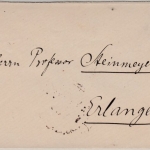 Herrn Professor Steinmeyer
Erlangen